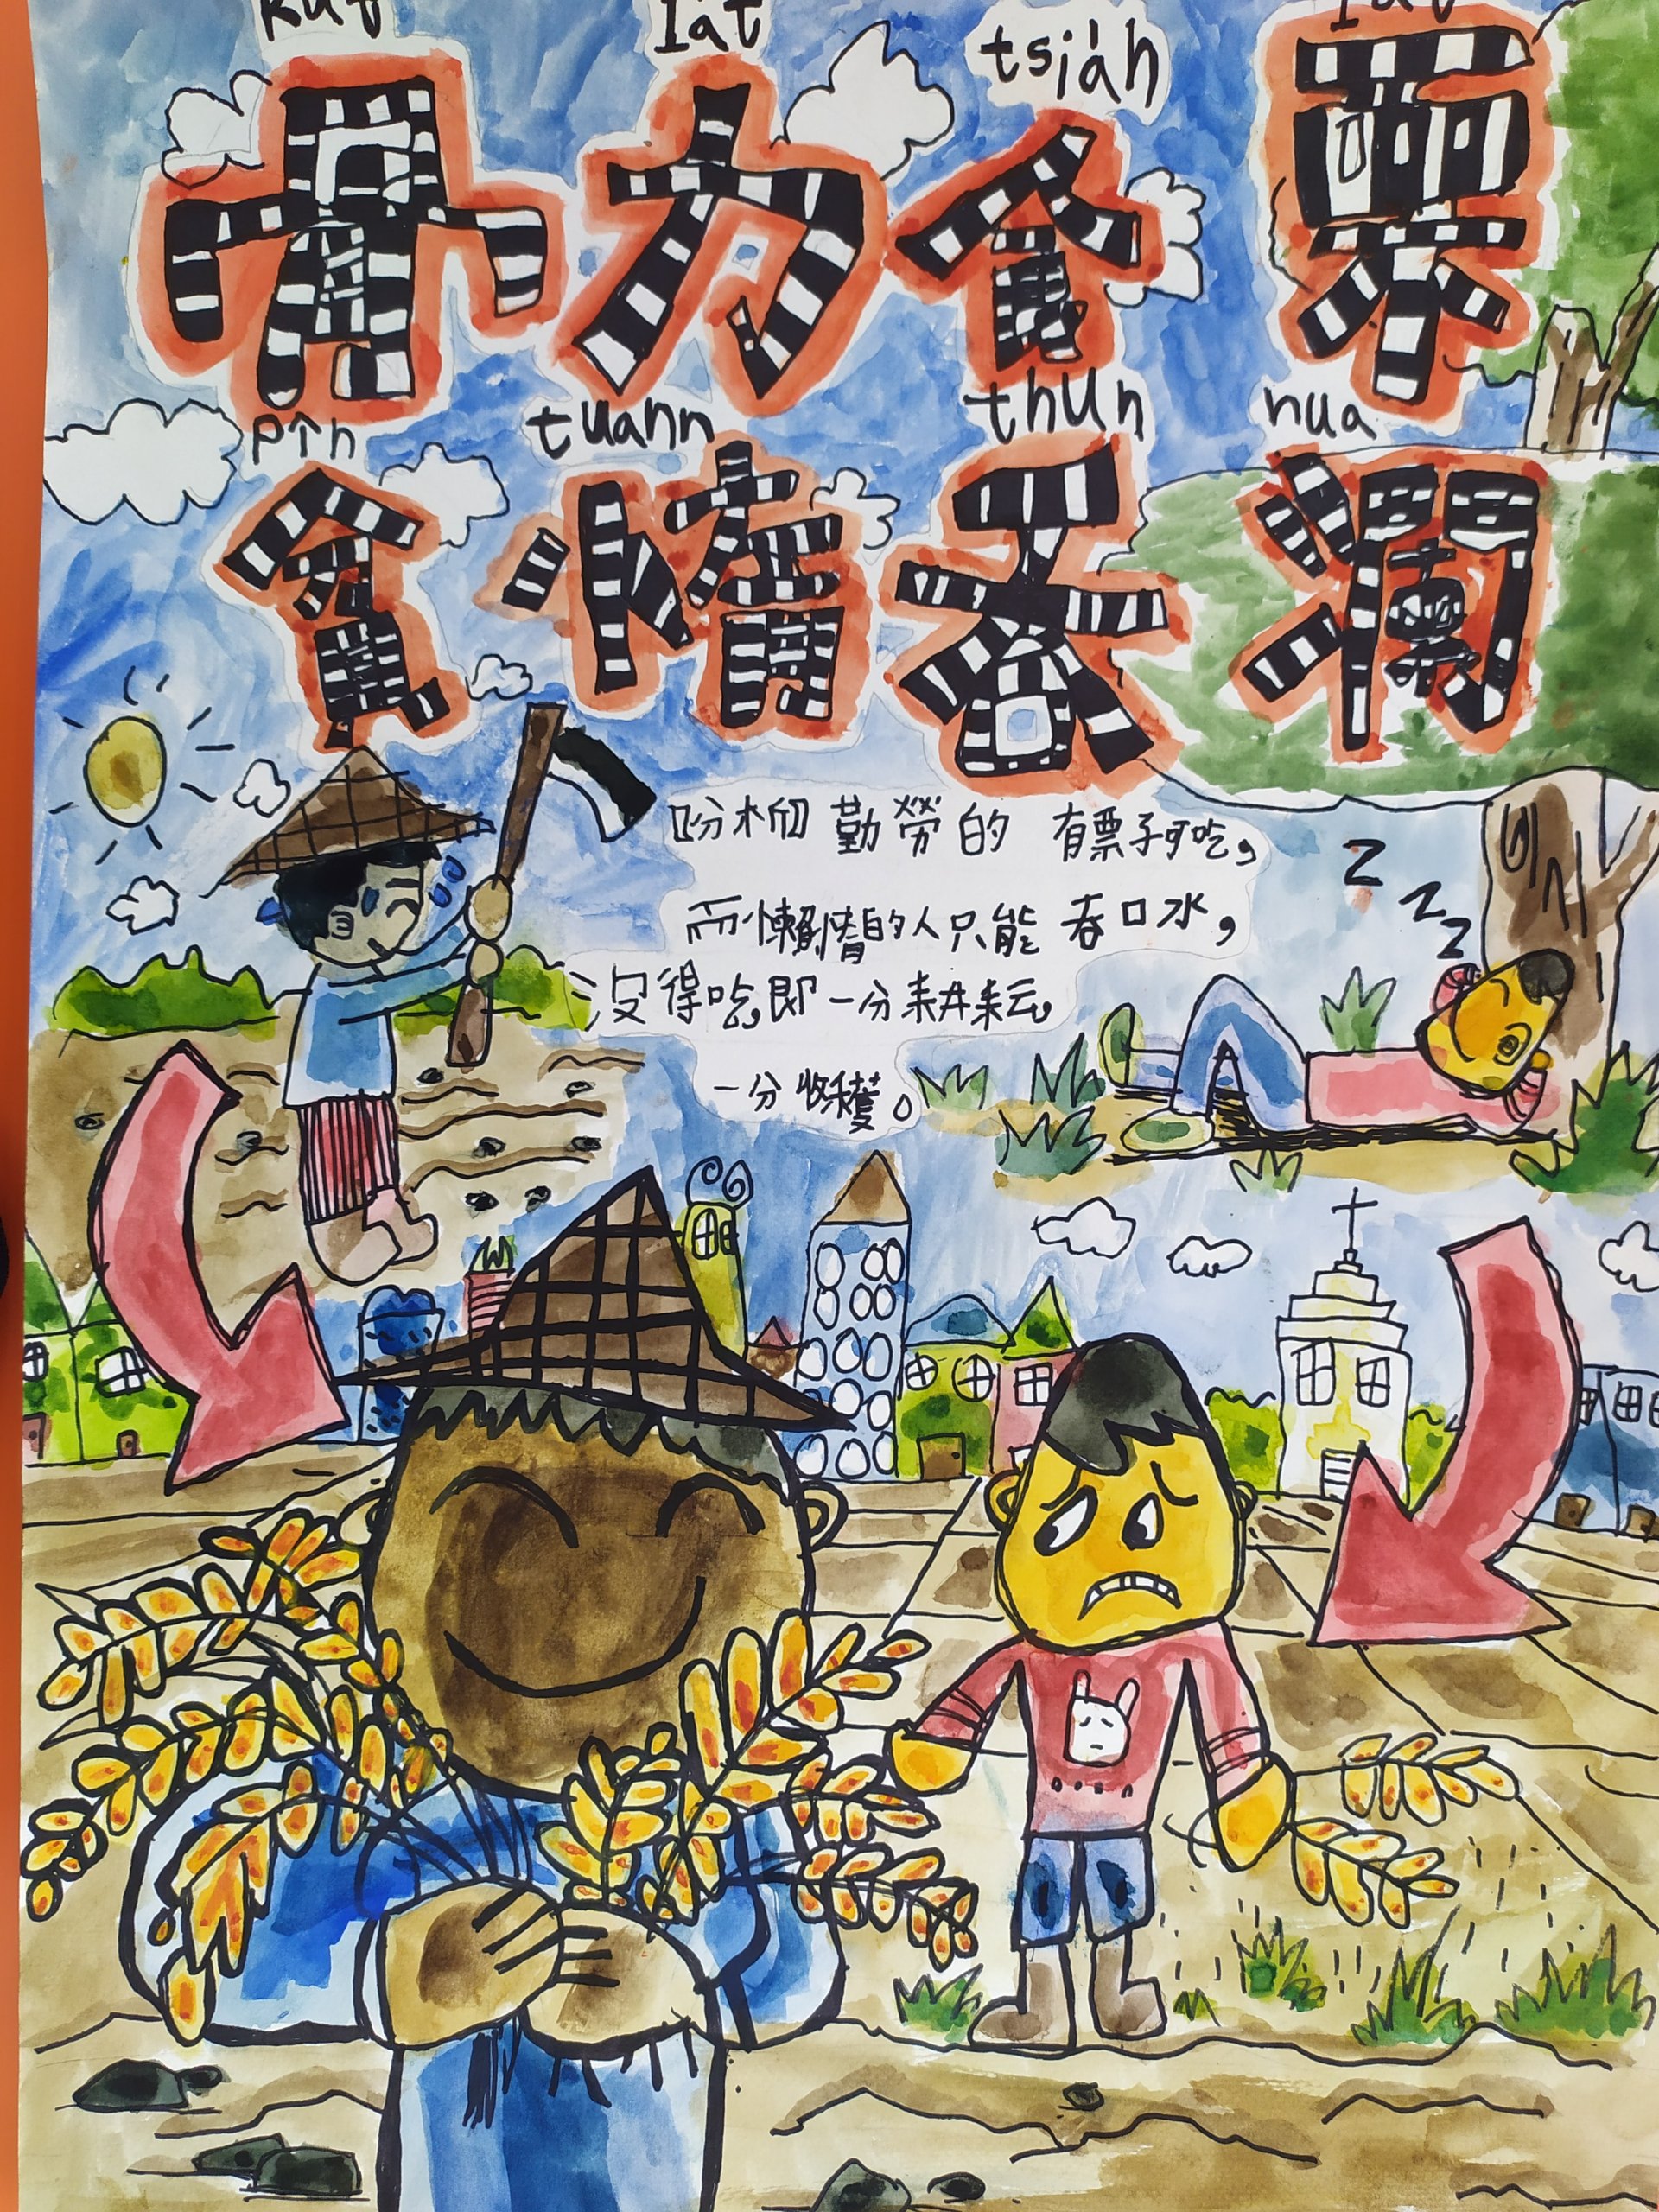 kut lat tsia̍h lat
骨力食栗
pîn tuann thun nua
貧惰吞瀾
勤勞的 有票子可吃，
而懶惰的人只能 吞口水，
沒得吃。即一分耕耘。
一分收穫。
z z z